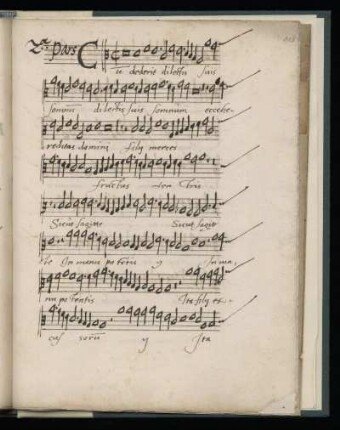 2ª Pars
Cū dederit dilectis suis
somnū dilectis suis somnum ecce he-
reditas domini filij merces
fructus ven tris
Sicut sagitte Sicut sagit
te In manu po tētis ij In ma,
nu potentis Ita filij ex-
cus sorū ij Ita